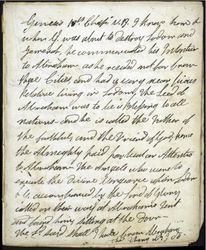 Genesis 18th Chapt. V 17. I Know him &
when God was about to destroy Sodom and
Gomorrah, he communicated his Intention
to Abraham as he resided not far from
these Cities and had a very near
Relative living in Sodom, the Seed of
Abraham was to be a blessing to all
nations and he is called the Father of
the faithful and the Friend of God hence
the Almighty paid particular Attention
to Abraham the Angels who were to
execute the Divine Vengeance upon Sodom
is accompanied by the Lord of Glory
called in their way at Abraham's tent
and found him sitting at the Door
the Ld said Shall I hide from Abraham
that thing